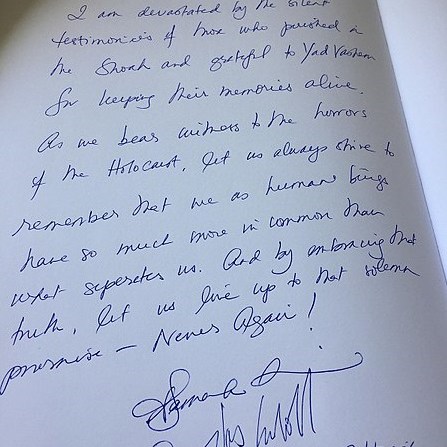 I am devastated by the silent
testimonies of those who perished in
the Shoah and grateful to Yad Vashem
for keeping their memories alive.
As we bear witness to the horrors
of the Holocaust, let us always strive to
remember that we as human beings
have so much more in common than
what seperates us. And by embracing that
truth, let us live up to that solemn
promise — Never Again!